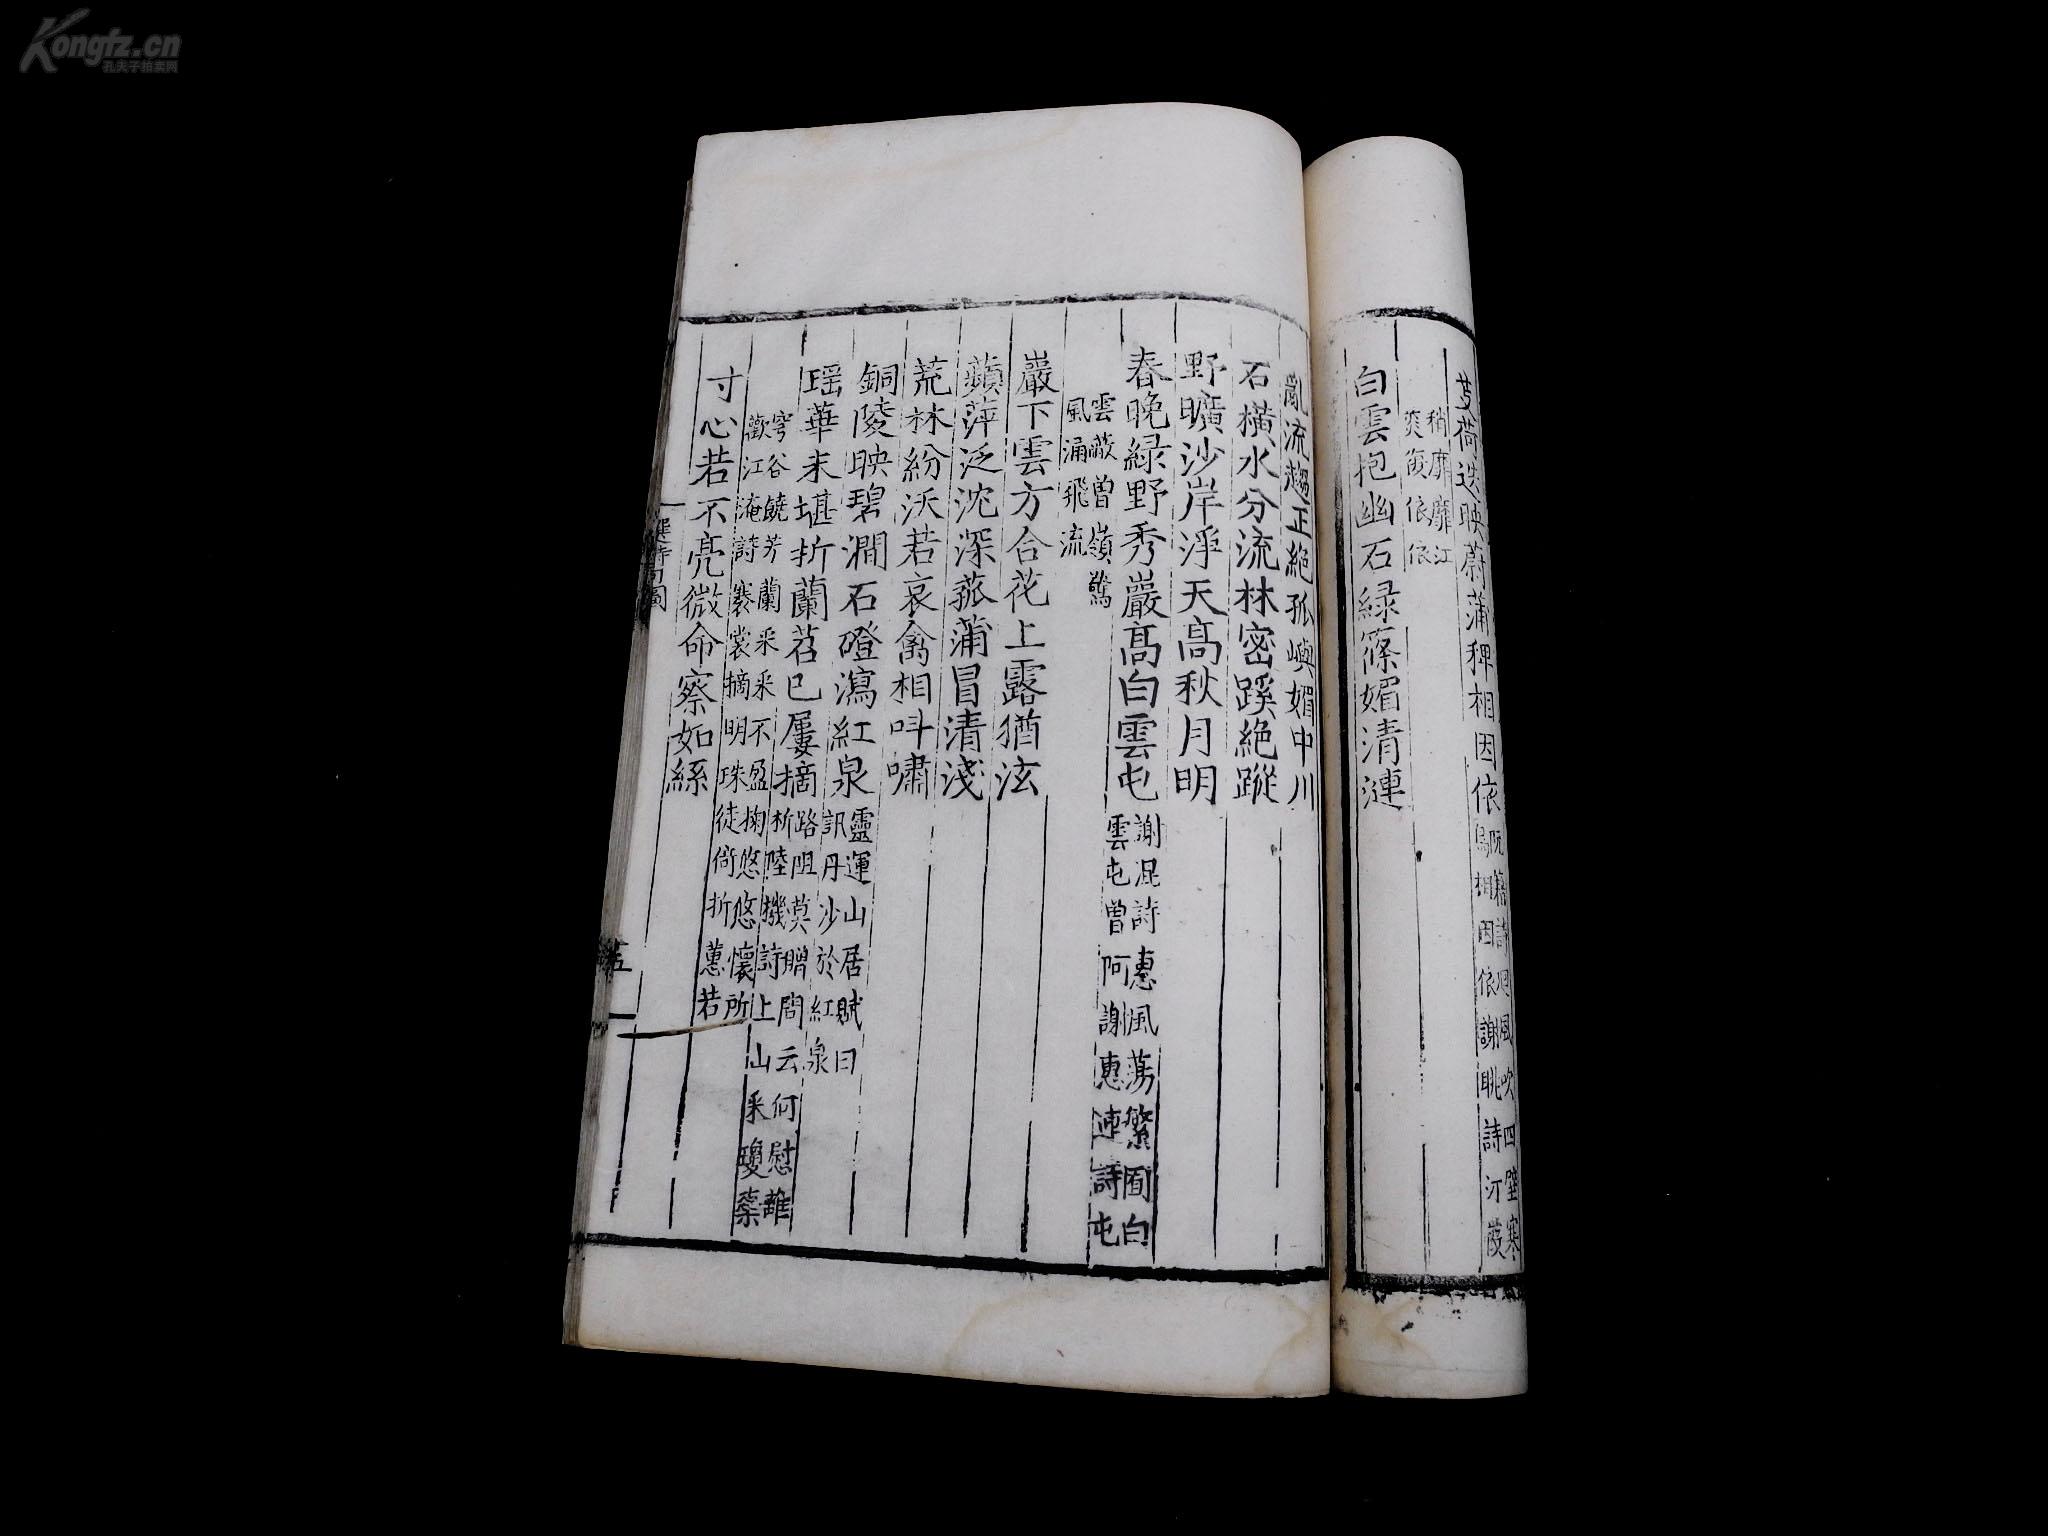 Kongfz.cn
孔夫子拍卖网
芰荷迭映蔚蒲稗相因依阮籍詩廻風吹四壁寒
鳥相因依謝眺詩汀葭
稍靡靡江
菼復依依
白雲抱幽石緑篠媚清漣
亂流趨正絶孤嶼媚中川
石橫水分流林密蹊絶蹤
野曠沙岸淨天髙秋月明
春晚緑野秀巖髙白雲屯謝混詩惠風蕩繁囿白
雲屯曾阿謝惠連詩屯
雲蔽曾嶺驚
風涌飛流
巖下雲方合花上露猶泫
蘋萍泛沈深菰蒲冒清淺
荒林紛沃若哀禽相呌嘯
銅陵映碧澗石磴瀉紅泉靈運山居賦曰
訊丹沙於紅泉
瑶華未堪折蘭苕已屢摘路阻莫贈問云何慰離
析陸機詩上山采瓊蘂
穹谷饒芳蘭采采不盈掬悠悠懷所
歡江淹詩褰裳摘明珠徒倚折蕙若
寸心若不亮微命察如絲
選詩句圖
五